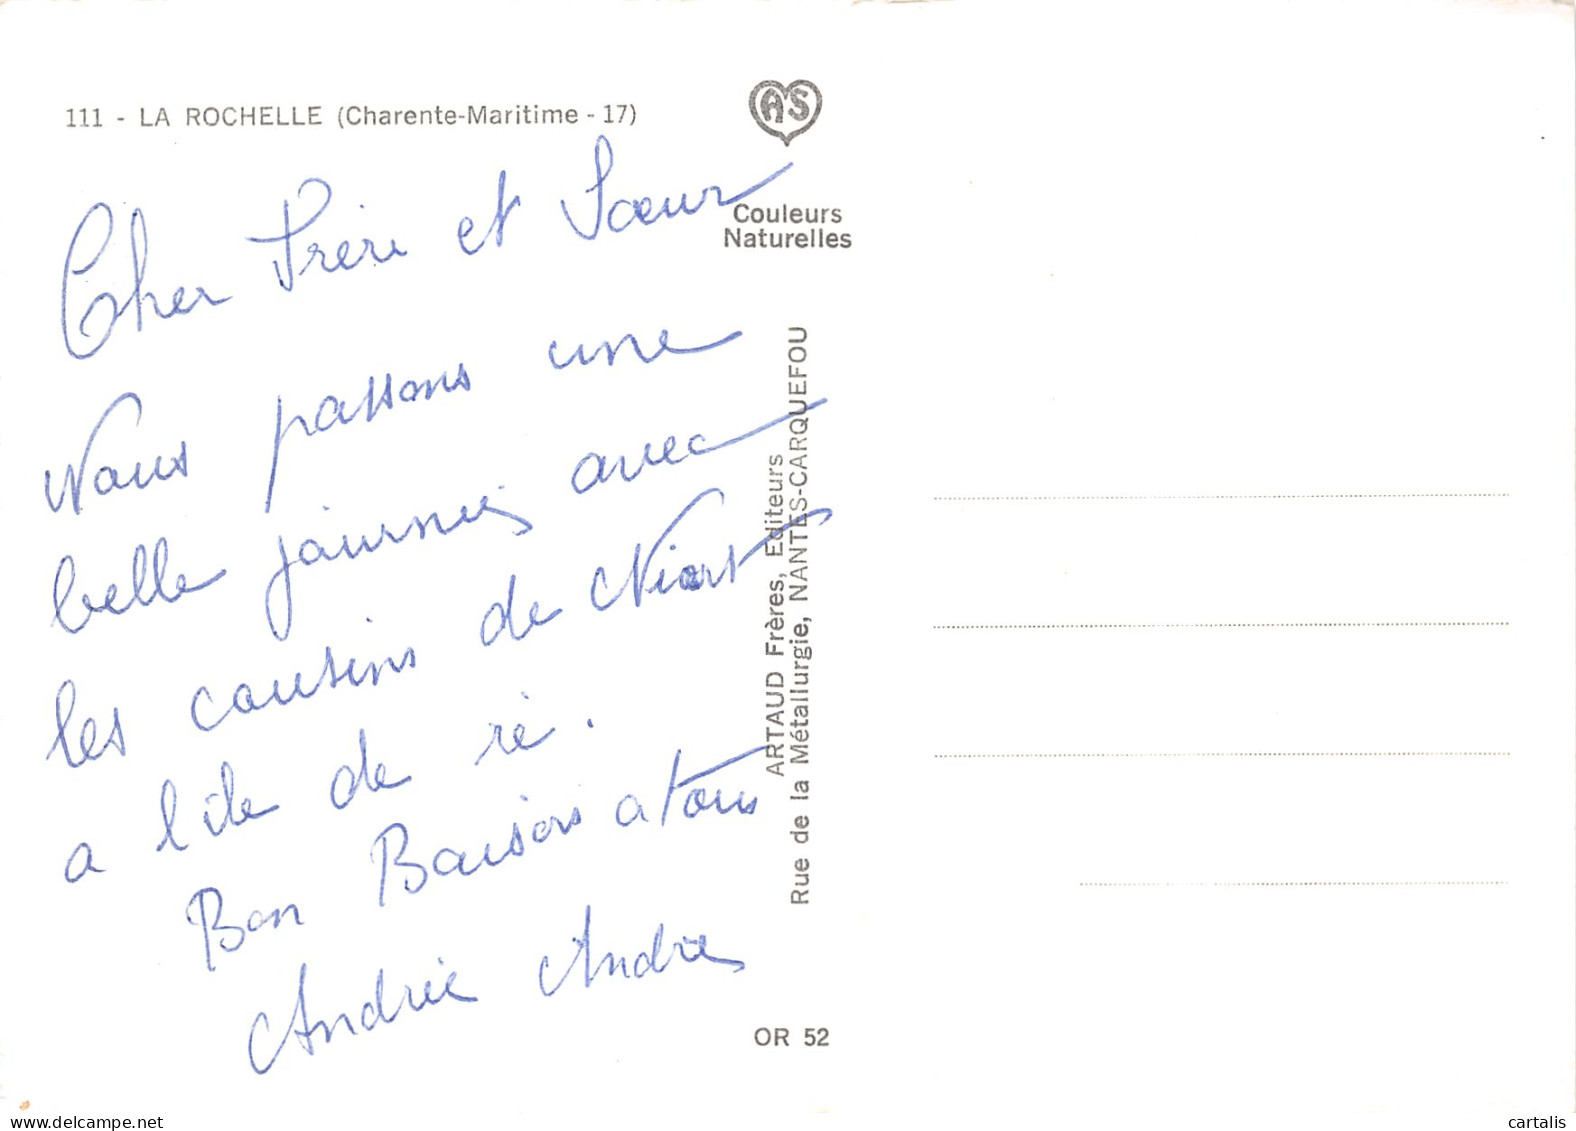 111 - LA ROCHELLE (Charente-Maritime - 17)
AS
Couleurs
Naturelles
Cher Frère et Sœur
Nous passons une
belle journée avec
les cousins de Niort
a l'ile de ré.
Bon Baisers a tous
Andrée Andre
ARTAUD Frères, Editeurs
Rue de la Métallurgie, NANTES-CARQUEFOU
OR 52
www.delcampe.net
cartalis